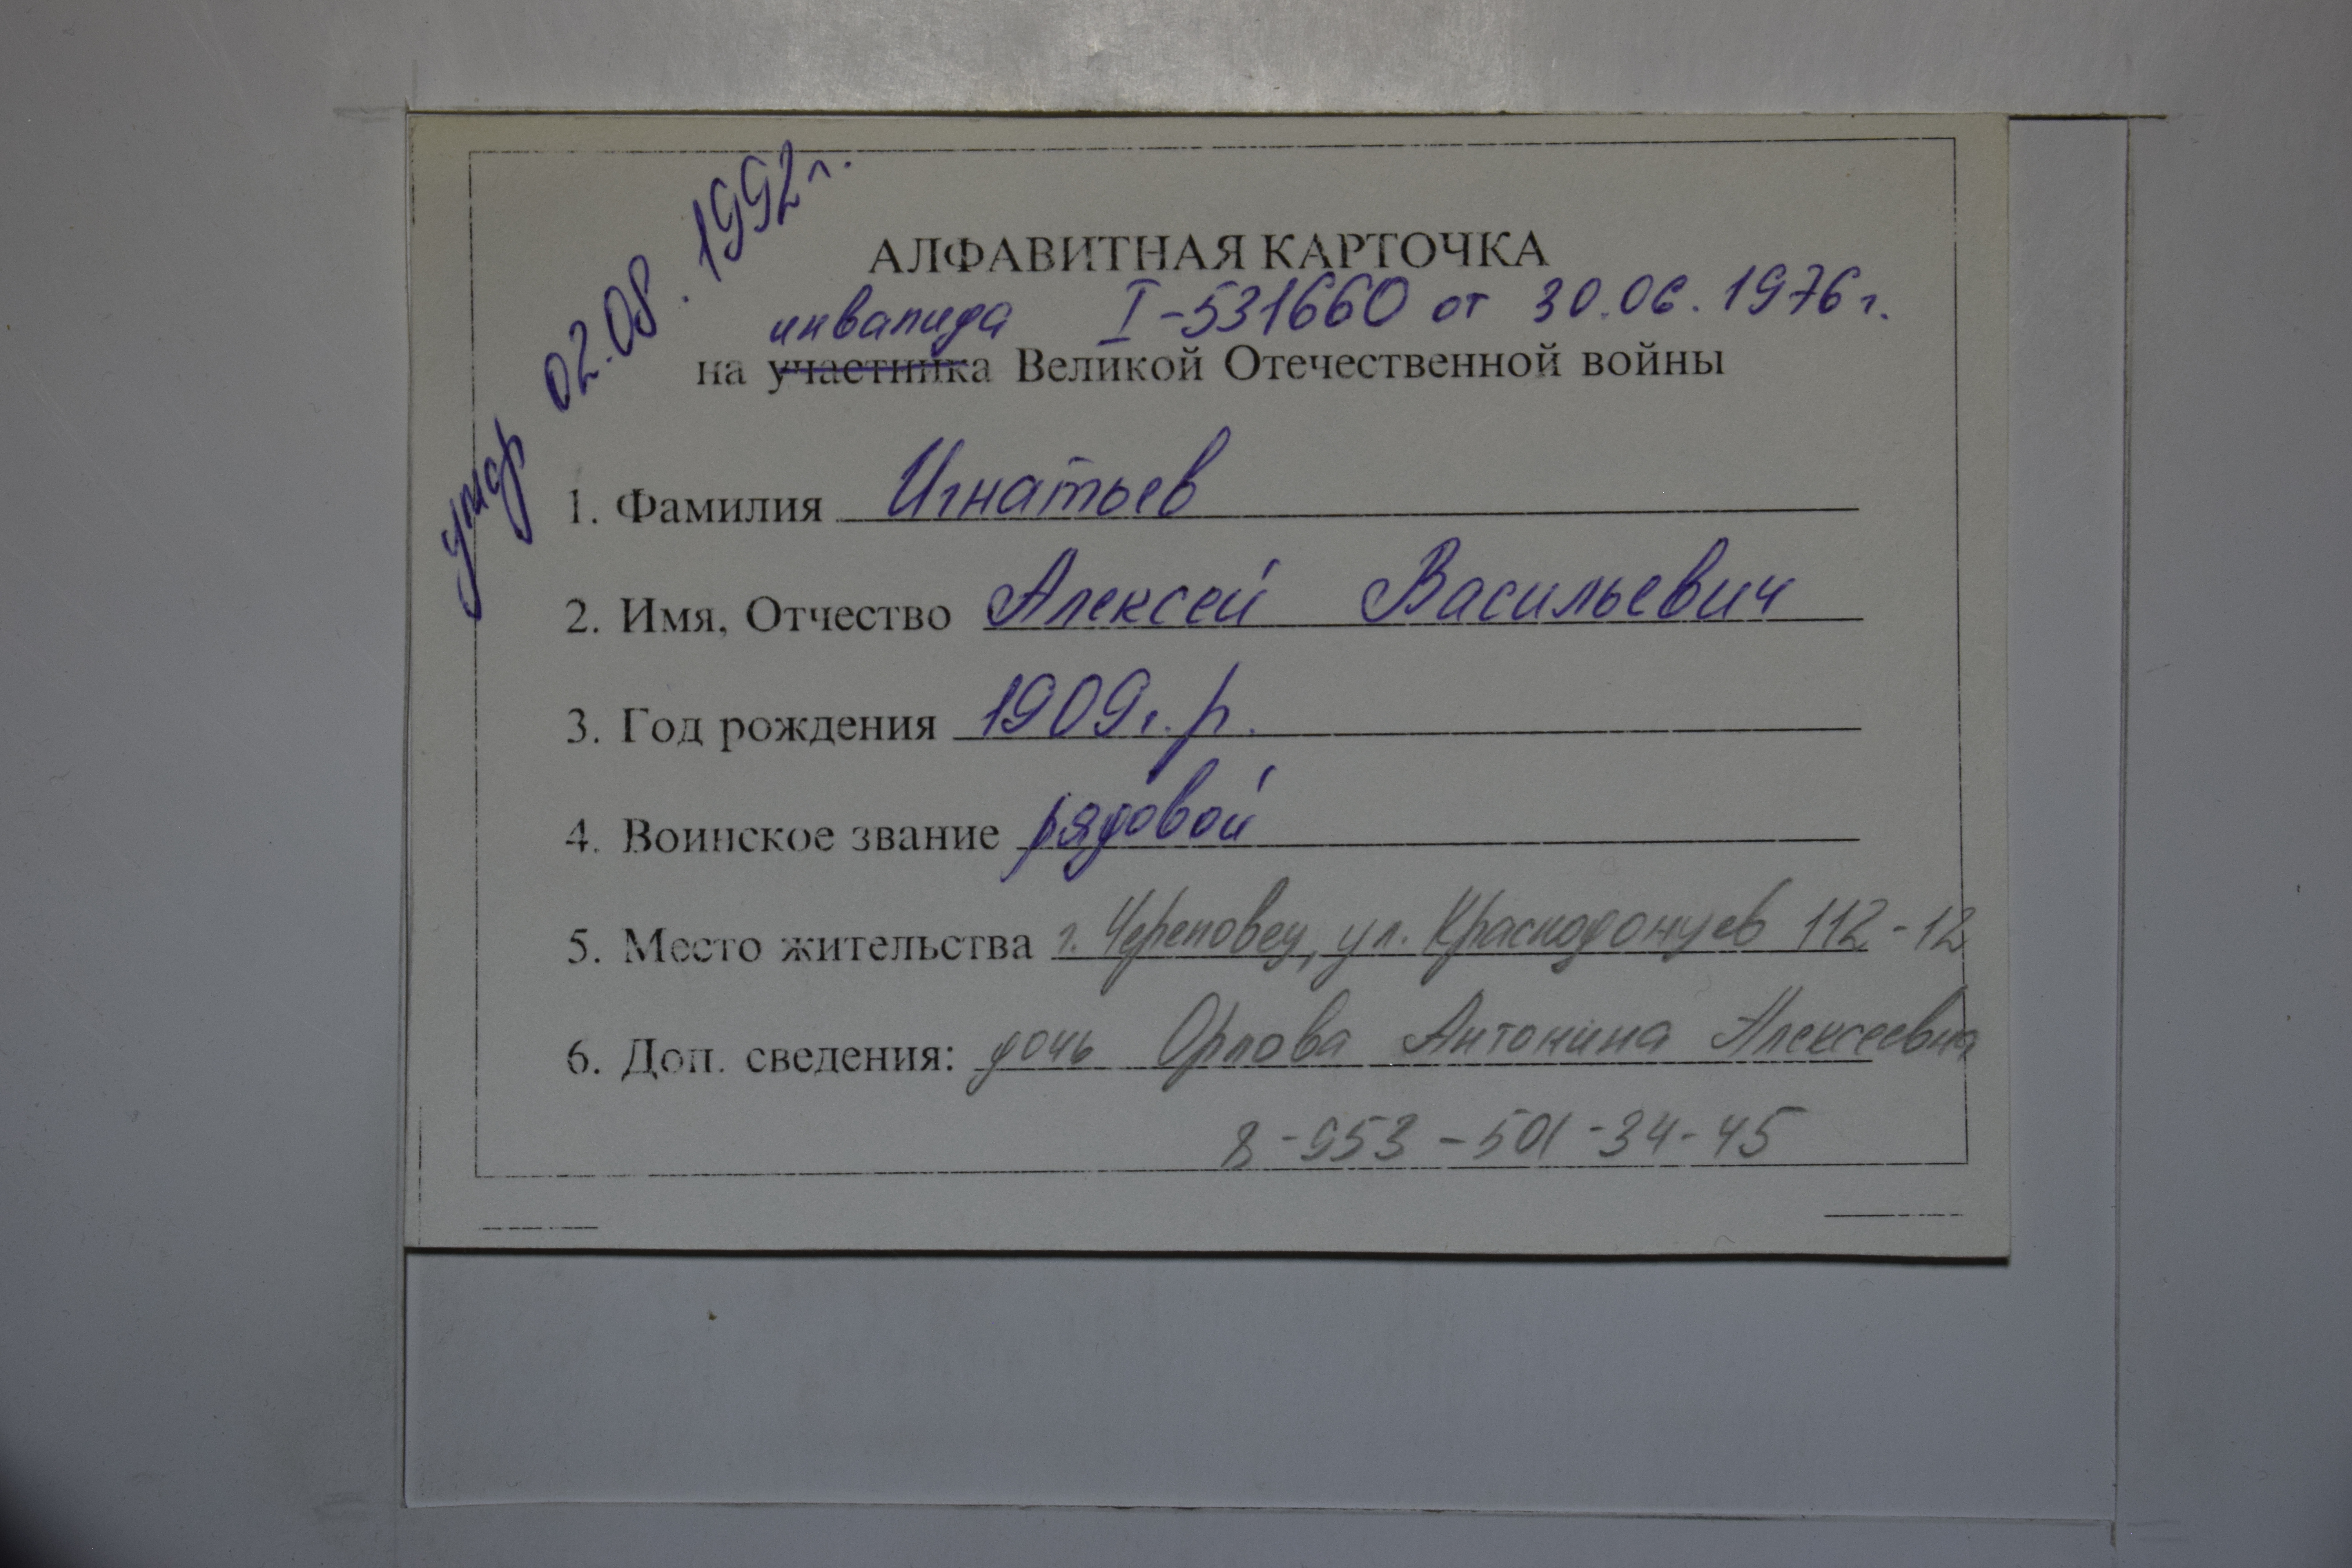 умер 02.08.1992г.
АЛФАВИТНАЯ КАРТОЧКА
инвалида I-531660 от 30.06.1976г.
на участника Великой Отечественной войны
1. Фамилия Игнатьев
2. Имя, Отчество Алексей Васильевич
3. Год рождения 1909г.р.
4. Воинское звание рядовой
5. Место жительства г. Череповец, ул. Краснодонцев 112-12
6. Доп. сведения: дочь Орлова Антонина Алексеевна
8-953-501-34-45